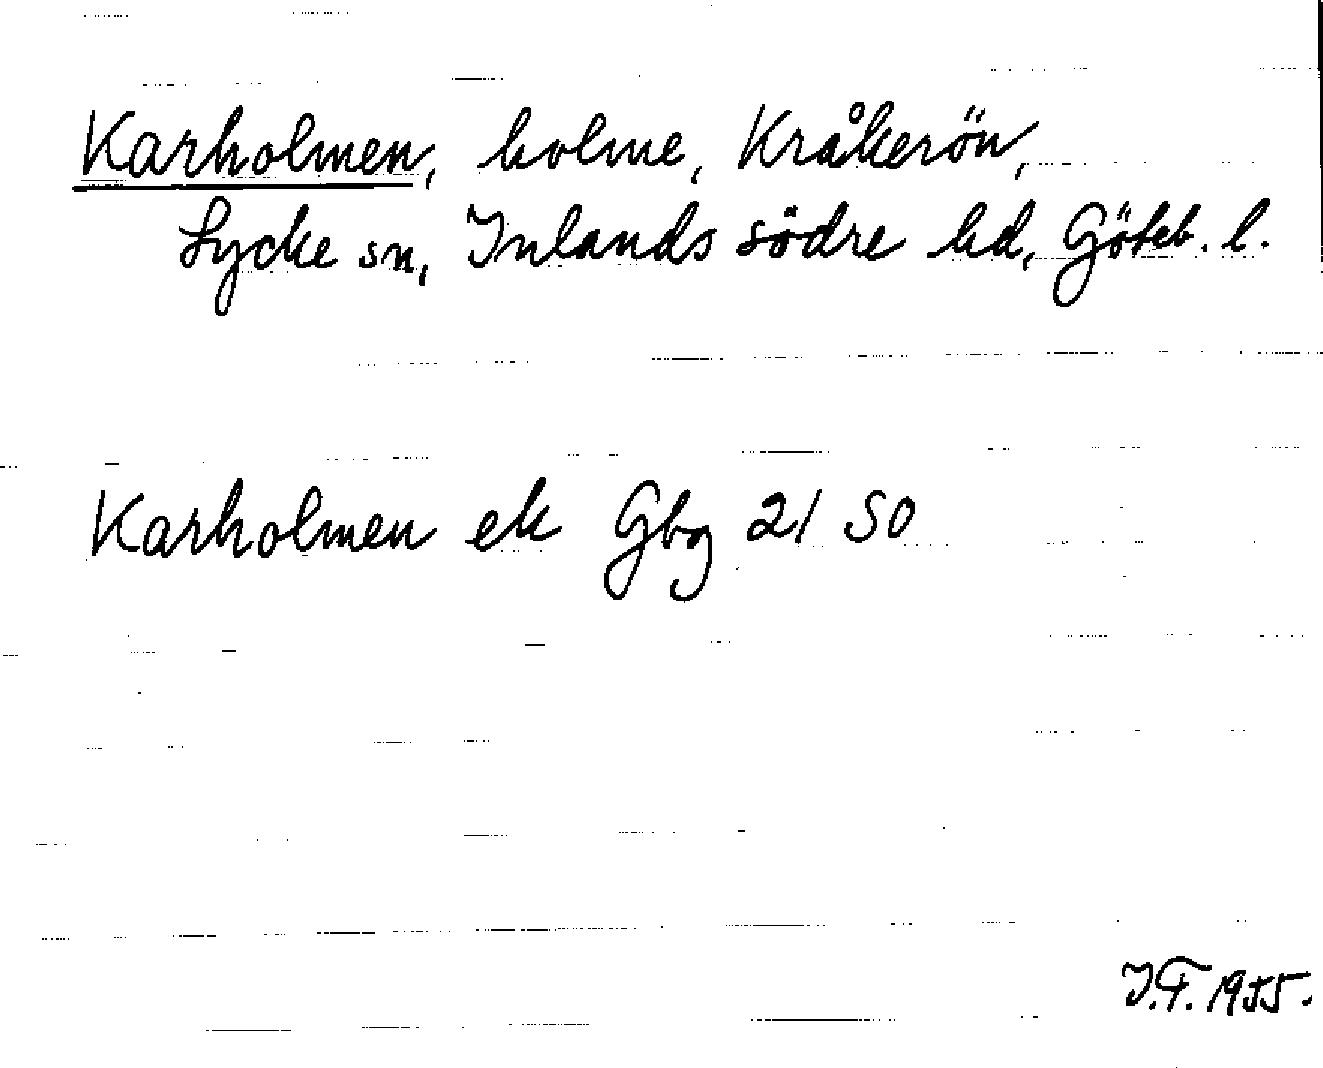 Karholmen, holme, Kråkerön,
Lycke sn, Inlands södre hd, Göteb. l.
Karholmen ek Gbg 21 SO
I.F. 1955.